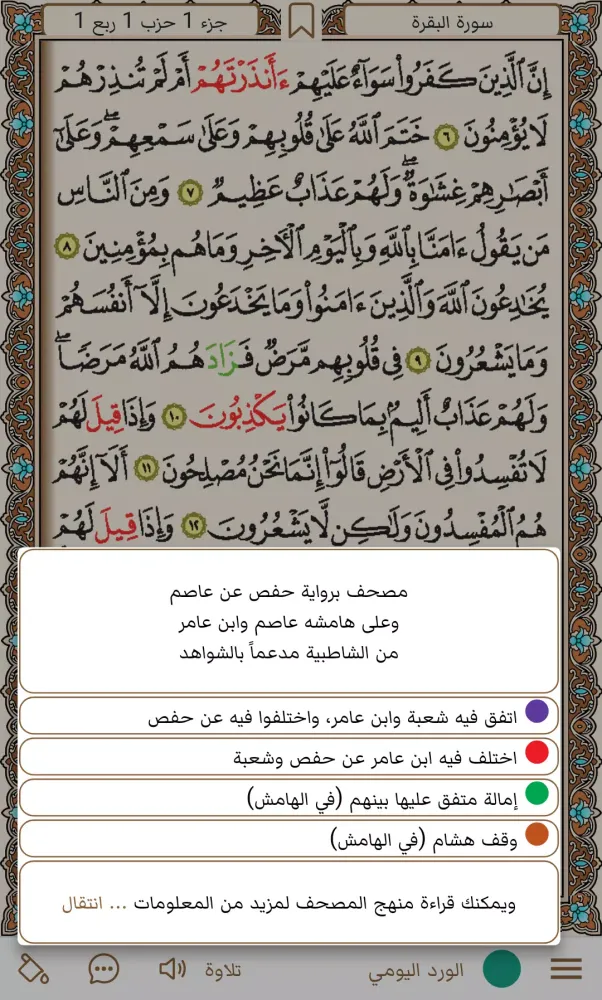 سورة البقرة
جزء 1 حزب 1 ربع 1
إِنَّ ٱلَّذِينَ كَفَرُوا۟ سَوَآءٌ عَلَيْهِمْ ءَأَنذَرْتَهُمْ أَمْ لَمْ تُنذِرْهُمْ
لَا يُؤْمِنُونَ ٦ خَتَمَ ٱللَّهُ عَلَىٰ قُلُوبِهِمْ وَعَلَىٰ سَمْعِهِمْ ۖ وَعَلَىٰٓ
أَبْصَٰرِهِمْ غِشَٰوَةٌ ۖ وَلَهُمْ عَذَابٌ عَظِيمٌ ٧ وَمِنَ ٱلنَّاسِ
مَن يَقُولُ ءَامَنَّا بِٱللَّهِ وَبِٱلْيَوْمِ ٱلْءَاخِرِ وَمَا هُم بِمُؤْمِنِينَ ٨
يُخَٰدِعُونَ ٱللَّهَ وَٱلَّذِينَ ءَامَنُوا۟ وَمَا يَخْدَعُونَ إِلَّآ أَنفُسَهُمْ
وَمَا يَشْعُرُونَ ٩ فِى قُلُوبِهِم مَّرَضٌ فَزَادَهُمُ ٱللَّهُ مَرَضًا ۖ
وَلَهُمْ عَذَابٌ أَلِيمٌۢ بِمَا كَانُوا۟ يَكْذِبُونَ ١٠ وَإِذَا قِيلَ لَهُمْ
لَا تُفْسِدُوا۟ فِى ٱلْأَرْضِ قَالُوٓا۟ إِنَّمَا نَحْنُ مُصْلِحُونَ ١١ أَلَآ إِنَّهُمْ
هُمُ ٱلْمُفْسِدُونَ وَلَٰكِن لَّا يَشْعُرُونَ ١٢ وَإِذَا قِيلَ لَهُمْ
مصحف برواية حفص عن عاصم
وعلى هامشه عاصم وابن عامر
من الشاطبية مدعماً بالشواهد
اتفق فيه شعبة وابن عامر، واختلفوا فيه عن حفص
اختلف فيه ابن عامر عن حفص وشعبة
إمالة متفق عليها بينهم (في الهامش)
وقف هشام (في الهامش)
ويمكنك قراءة منهج المصحف لمزيد من المعلومات ... انتقال
الورد اليومي
تلاوة